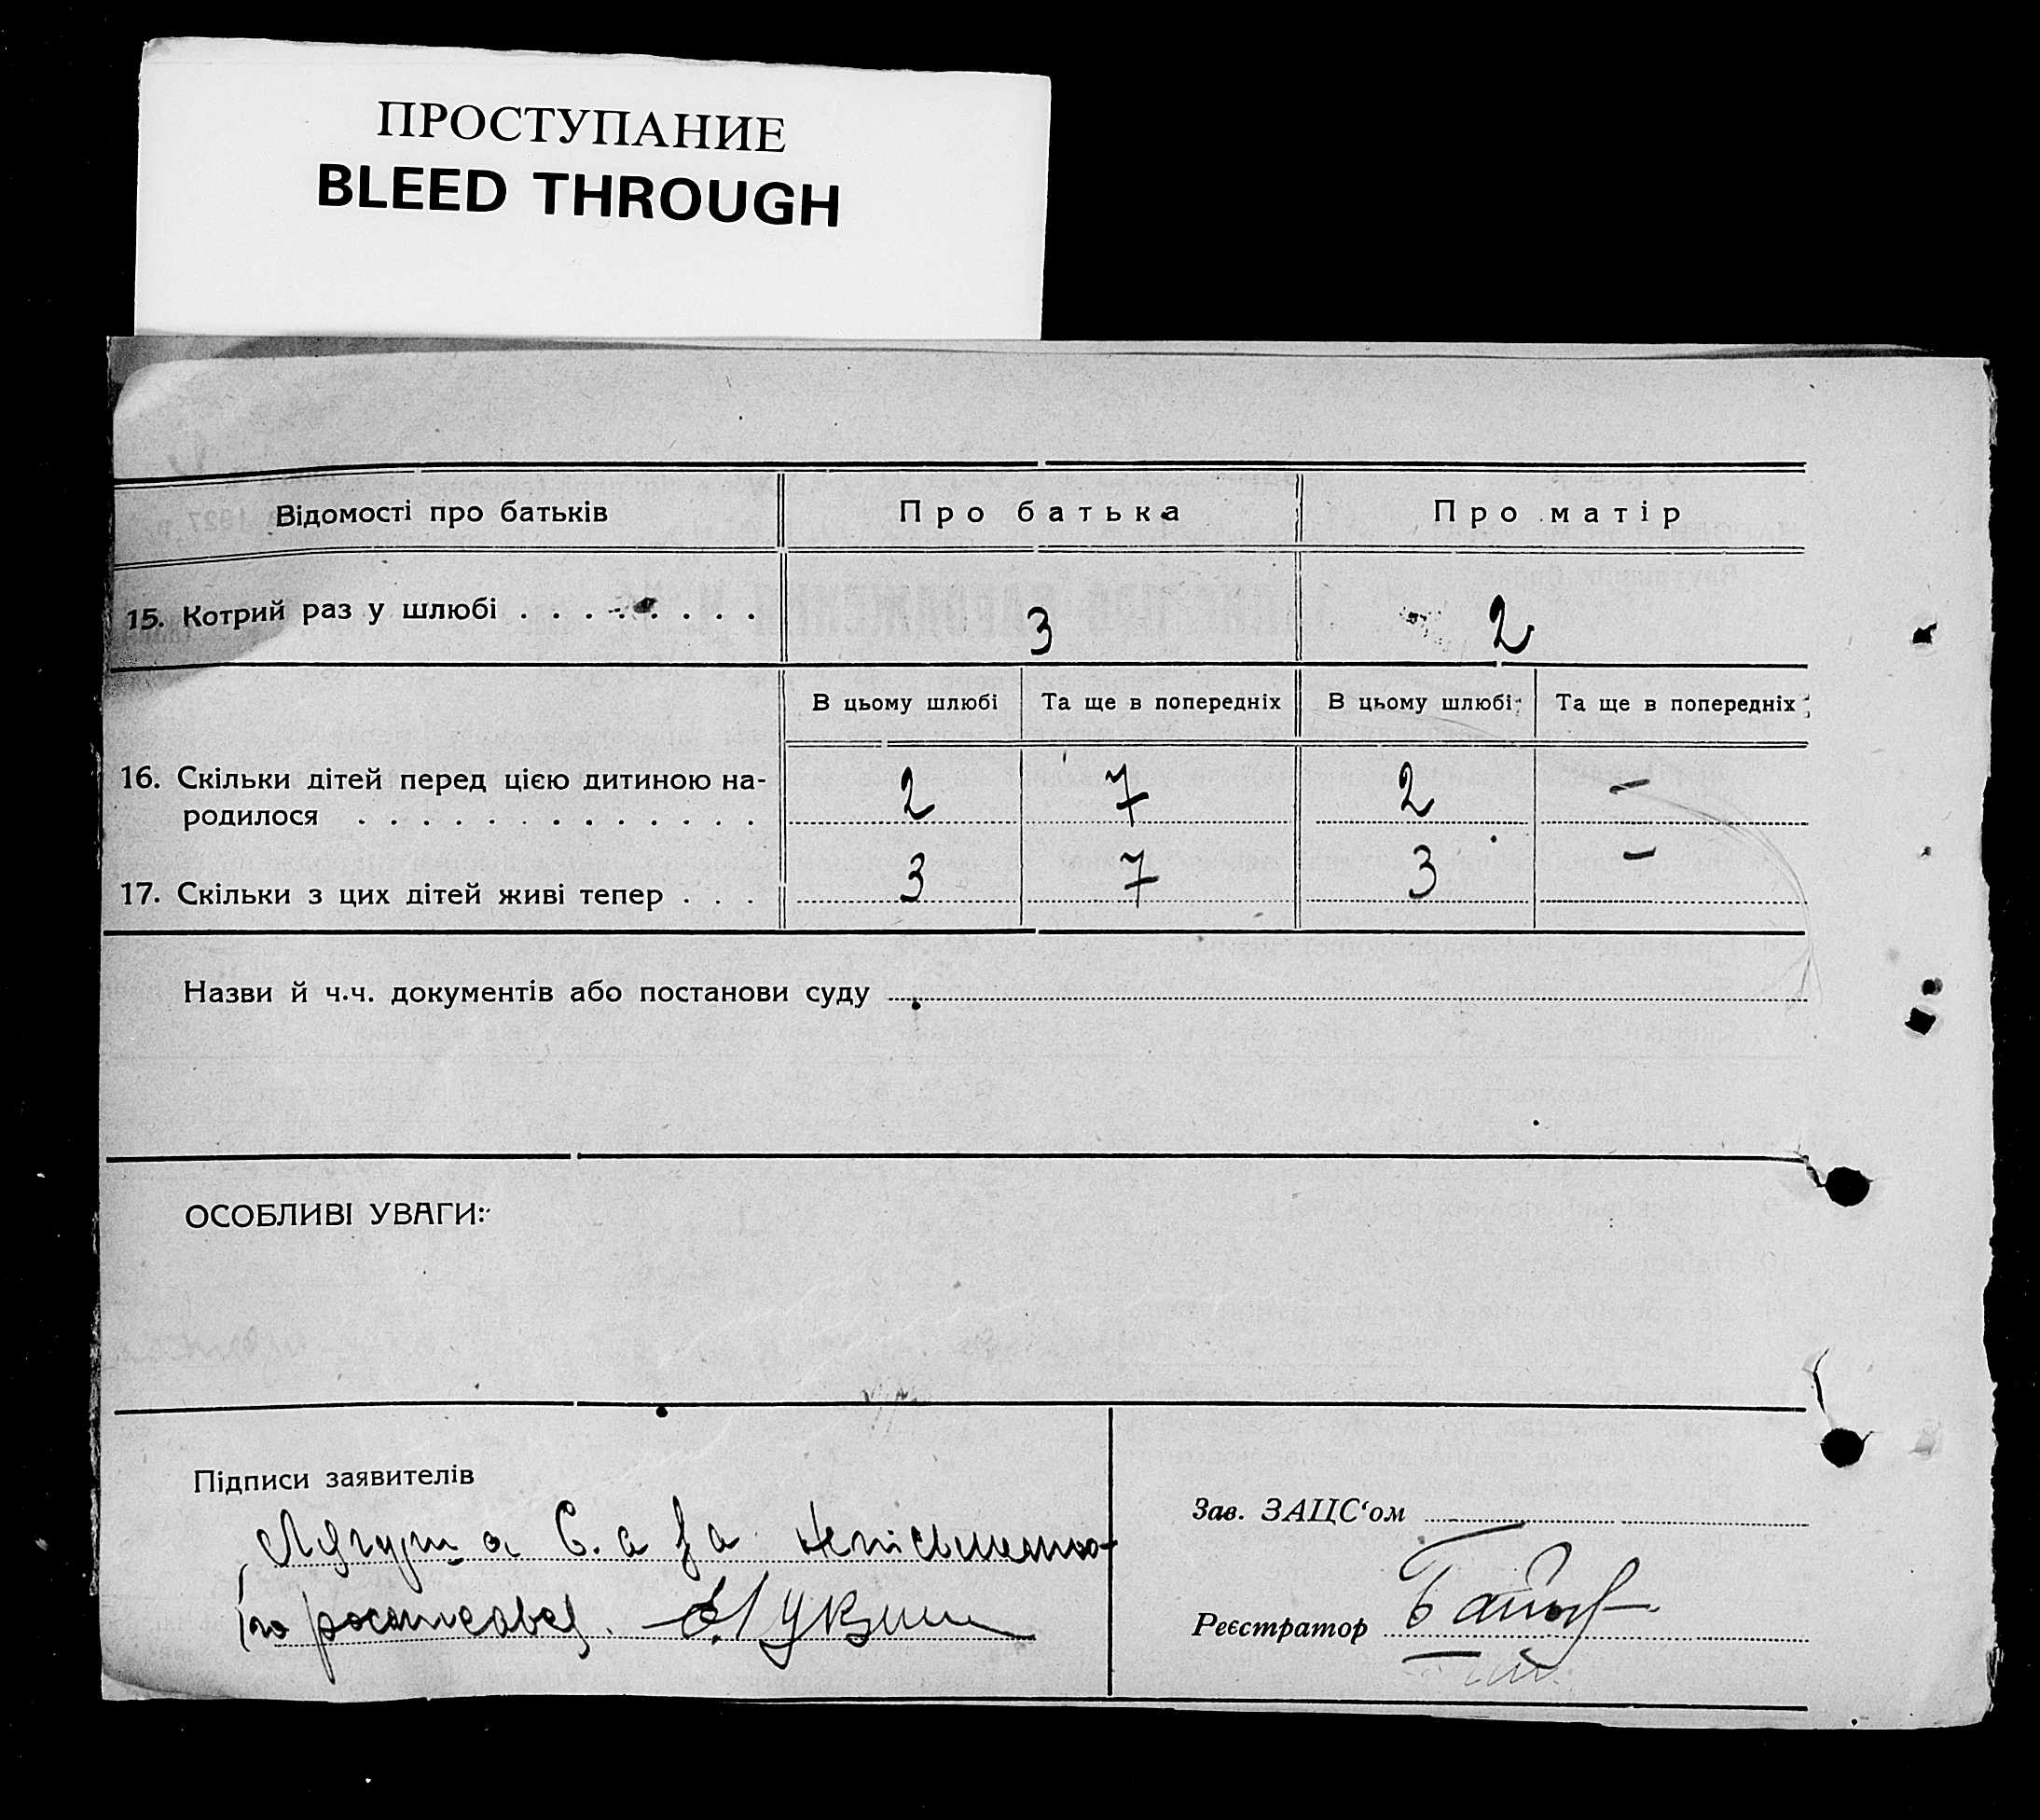 ПРОСТУПАНИЕ
BLEED THROUGH
Відомості про батьків Про батька Про матір
15. Котрий раз у шлюбі . . . . . . . . 3 2
В цьому шлюбі Та ще в попередніх В цьому шлюбі Та ще в попередніх
16. Скільки дітей перед цією дитиною на-
родилося . . . . . . . . . . . . . 2 7 2 —
17. Скільки з цих дітей живі тепер . . . 3 7 3 —
Назви й ч.ч. документів або постанови суду
ОСОБЛИВІ УВАГИ:
Підписи заявителів
С. а за неписьменно-
го росписавсь
Зав. ЗАЦС‘ом
Реєстратор